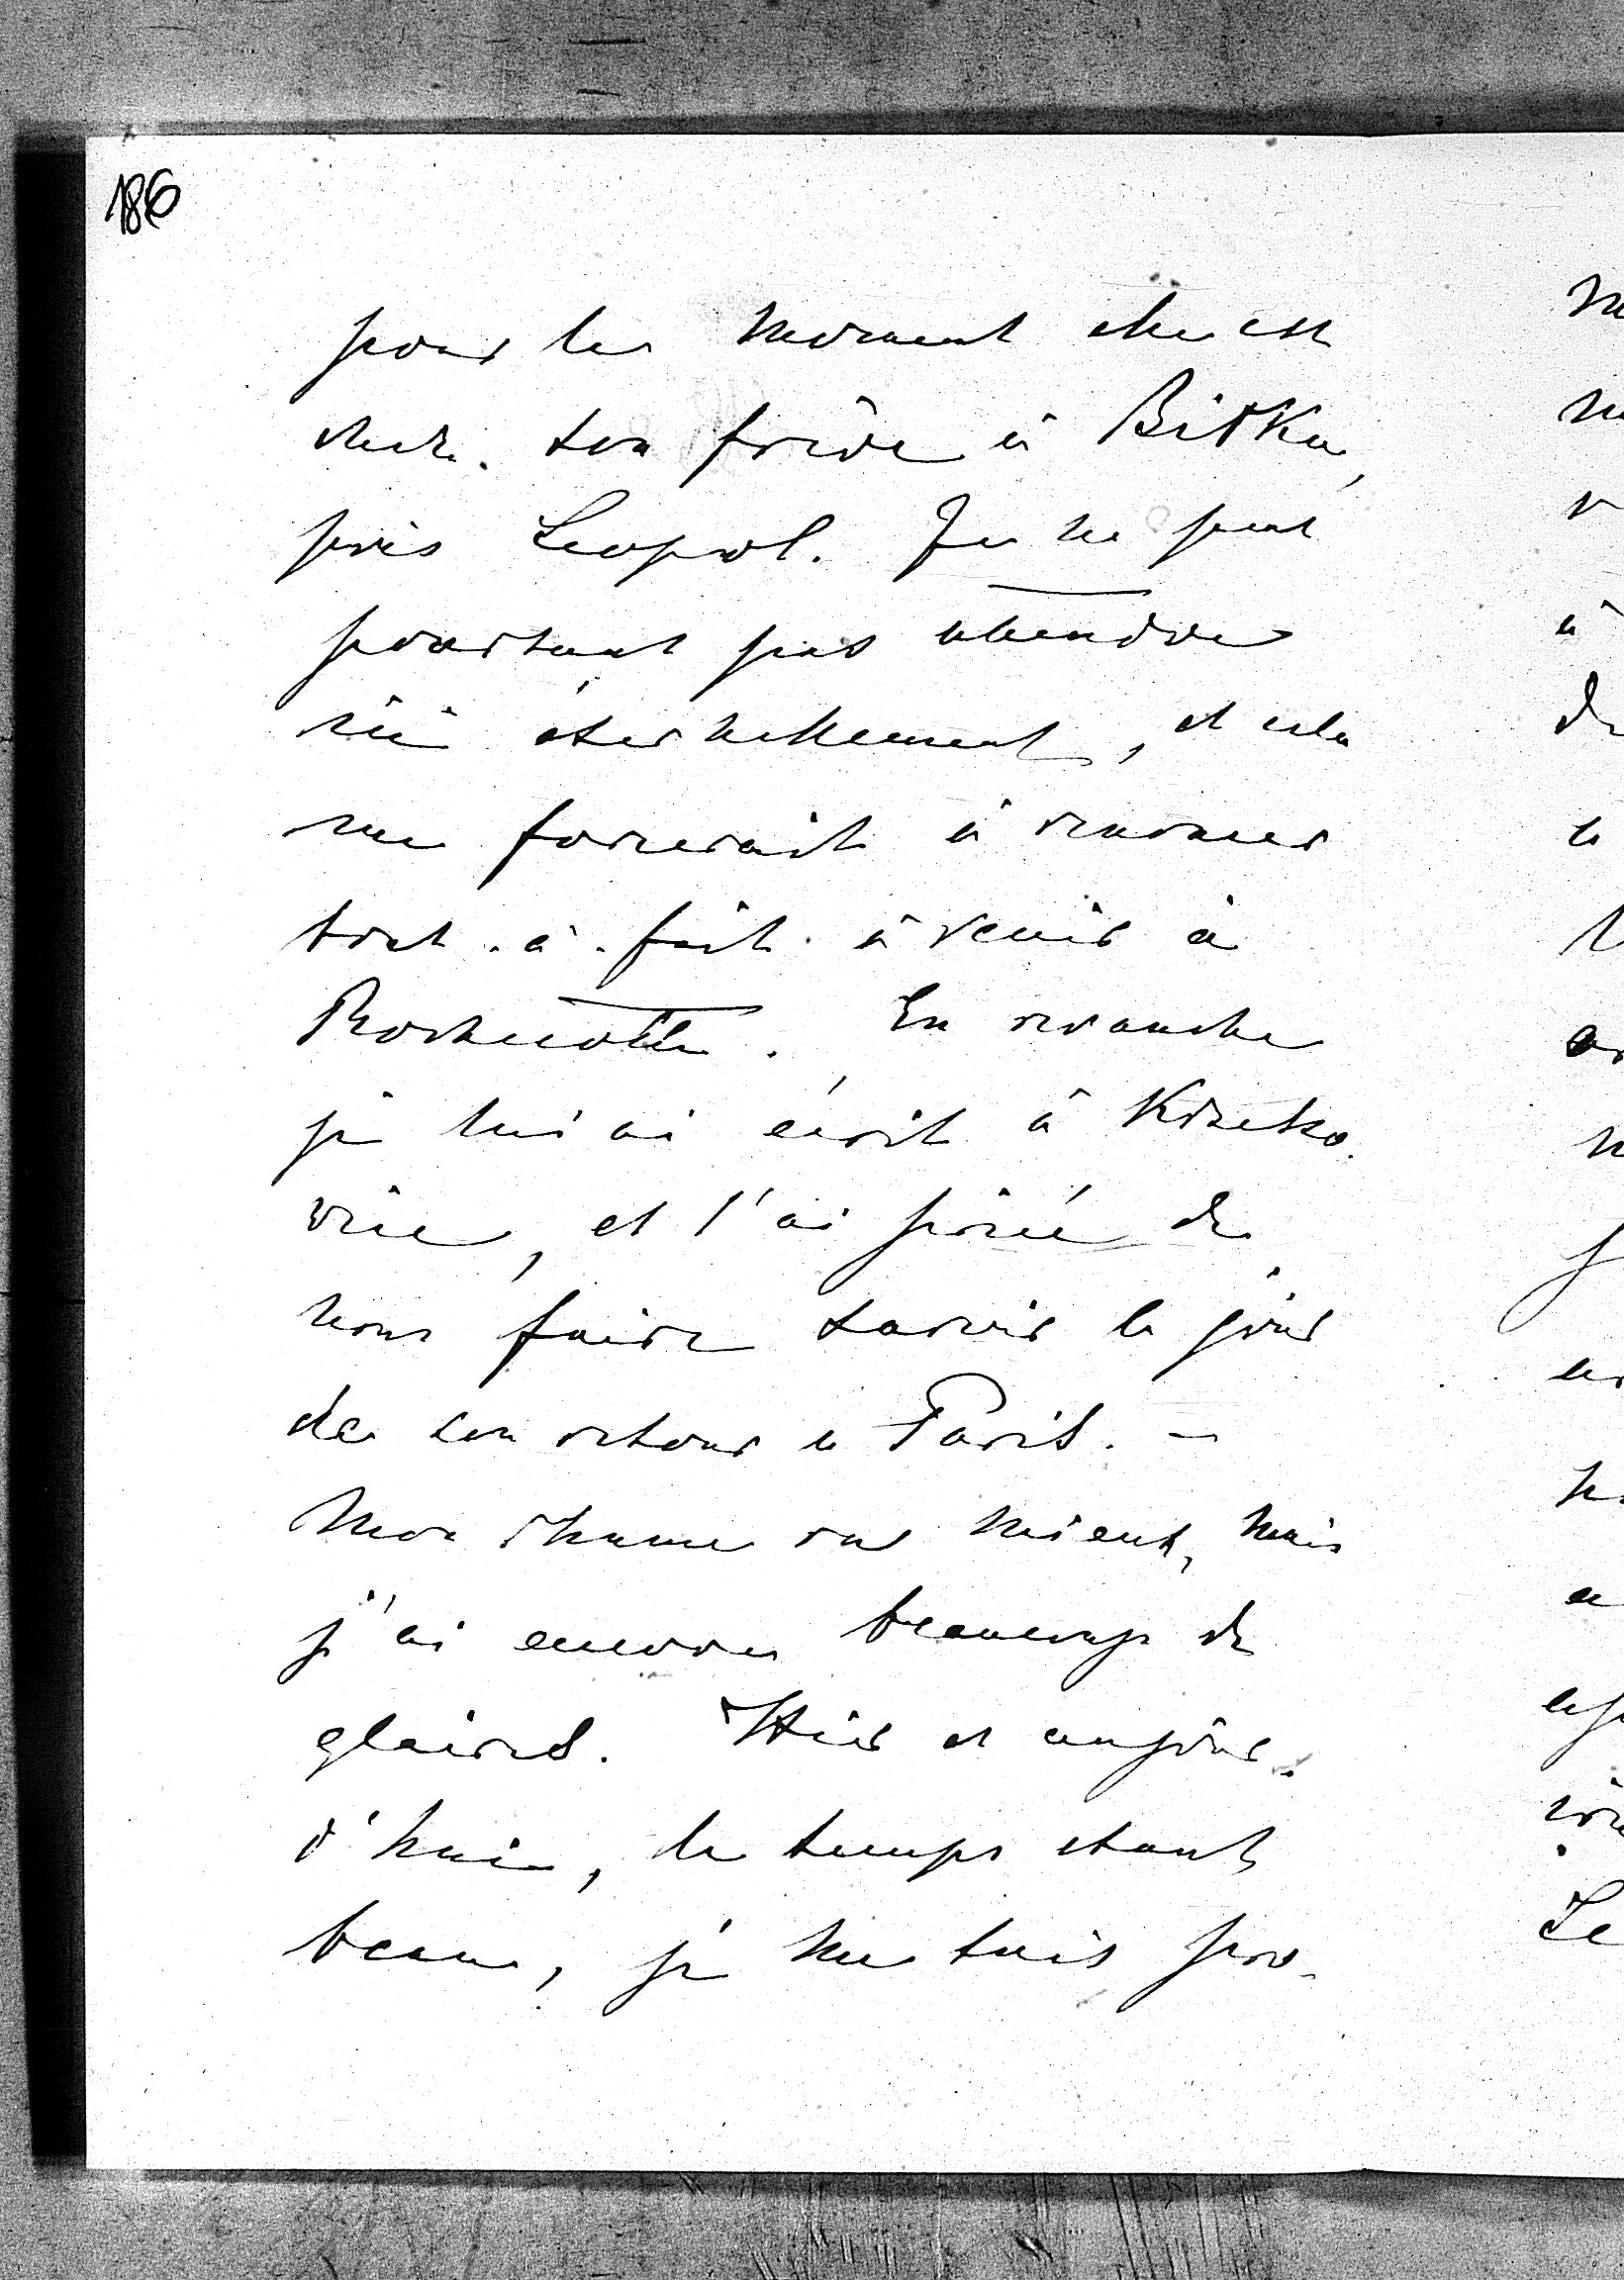 186
pour le moment elle est
chez son frère à Bitka,
près Leopol. Je ne peut
pourtant pas attendre
ici éternellement, et cela
me forcerait à renoncer
tout-à-fait à venir à
Rochecotte. En revanche
je lui ai écrit à Krzeszo-
vice, et l'ai priée de
nous faire savoir le jour
de son retour à Paris. –
Mon rhume va mieux, mais
j'ai encore beaucoup de
glaires. Hier et aujour-
d'hui, le temps étant
beau, je me suis pro-